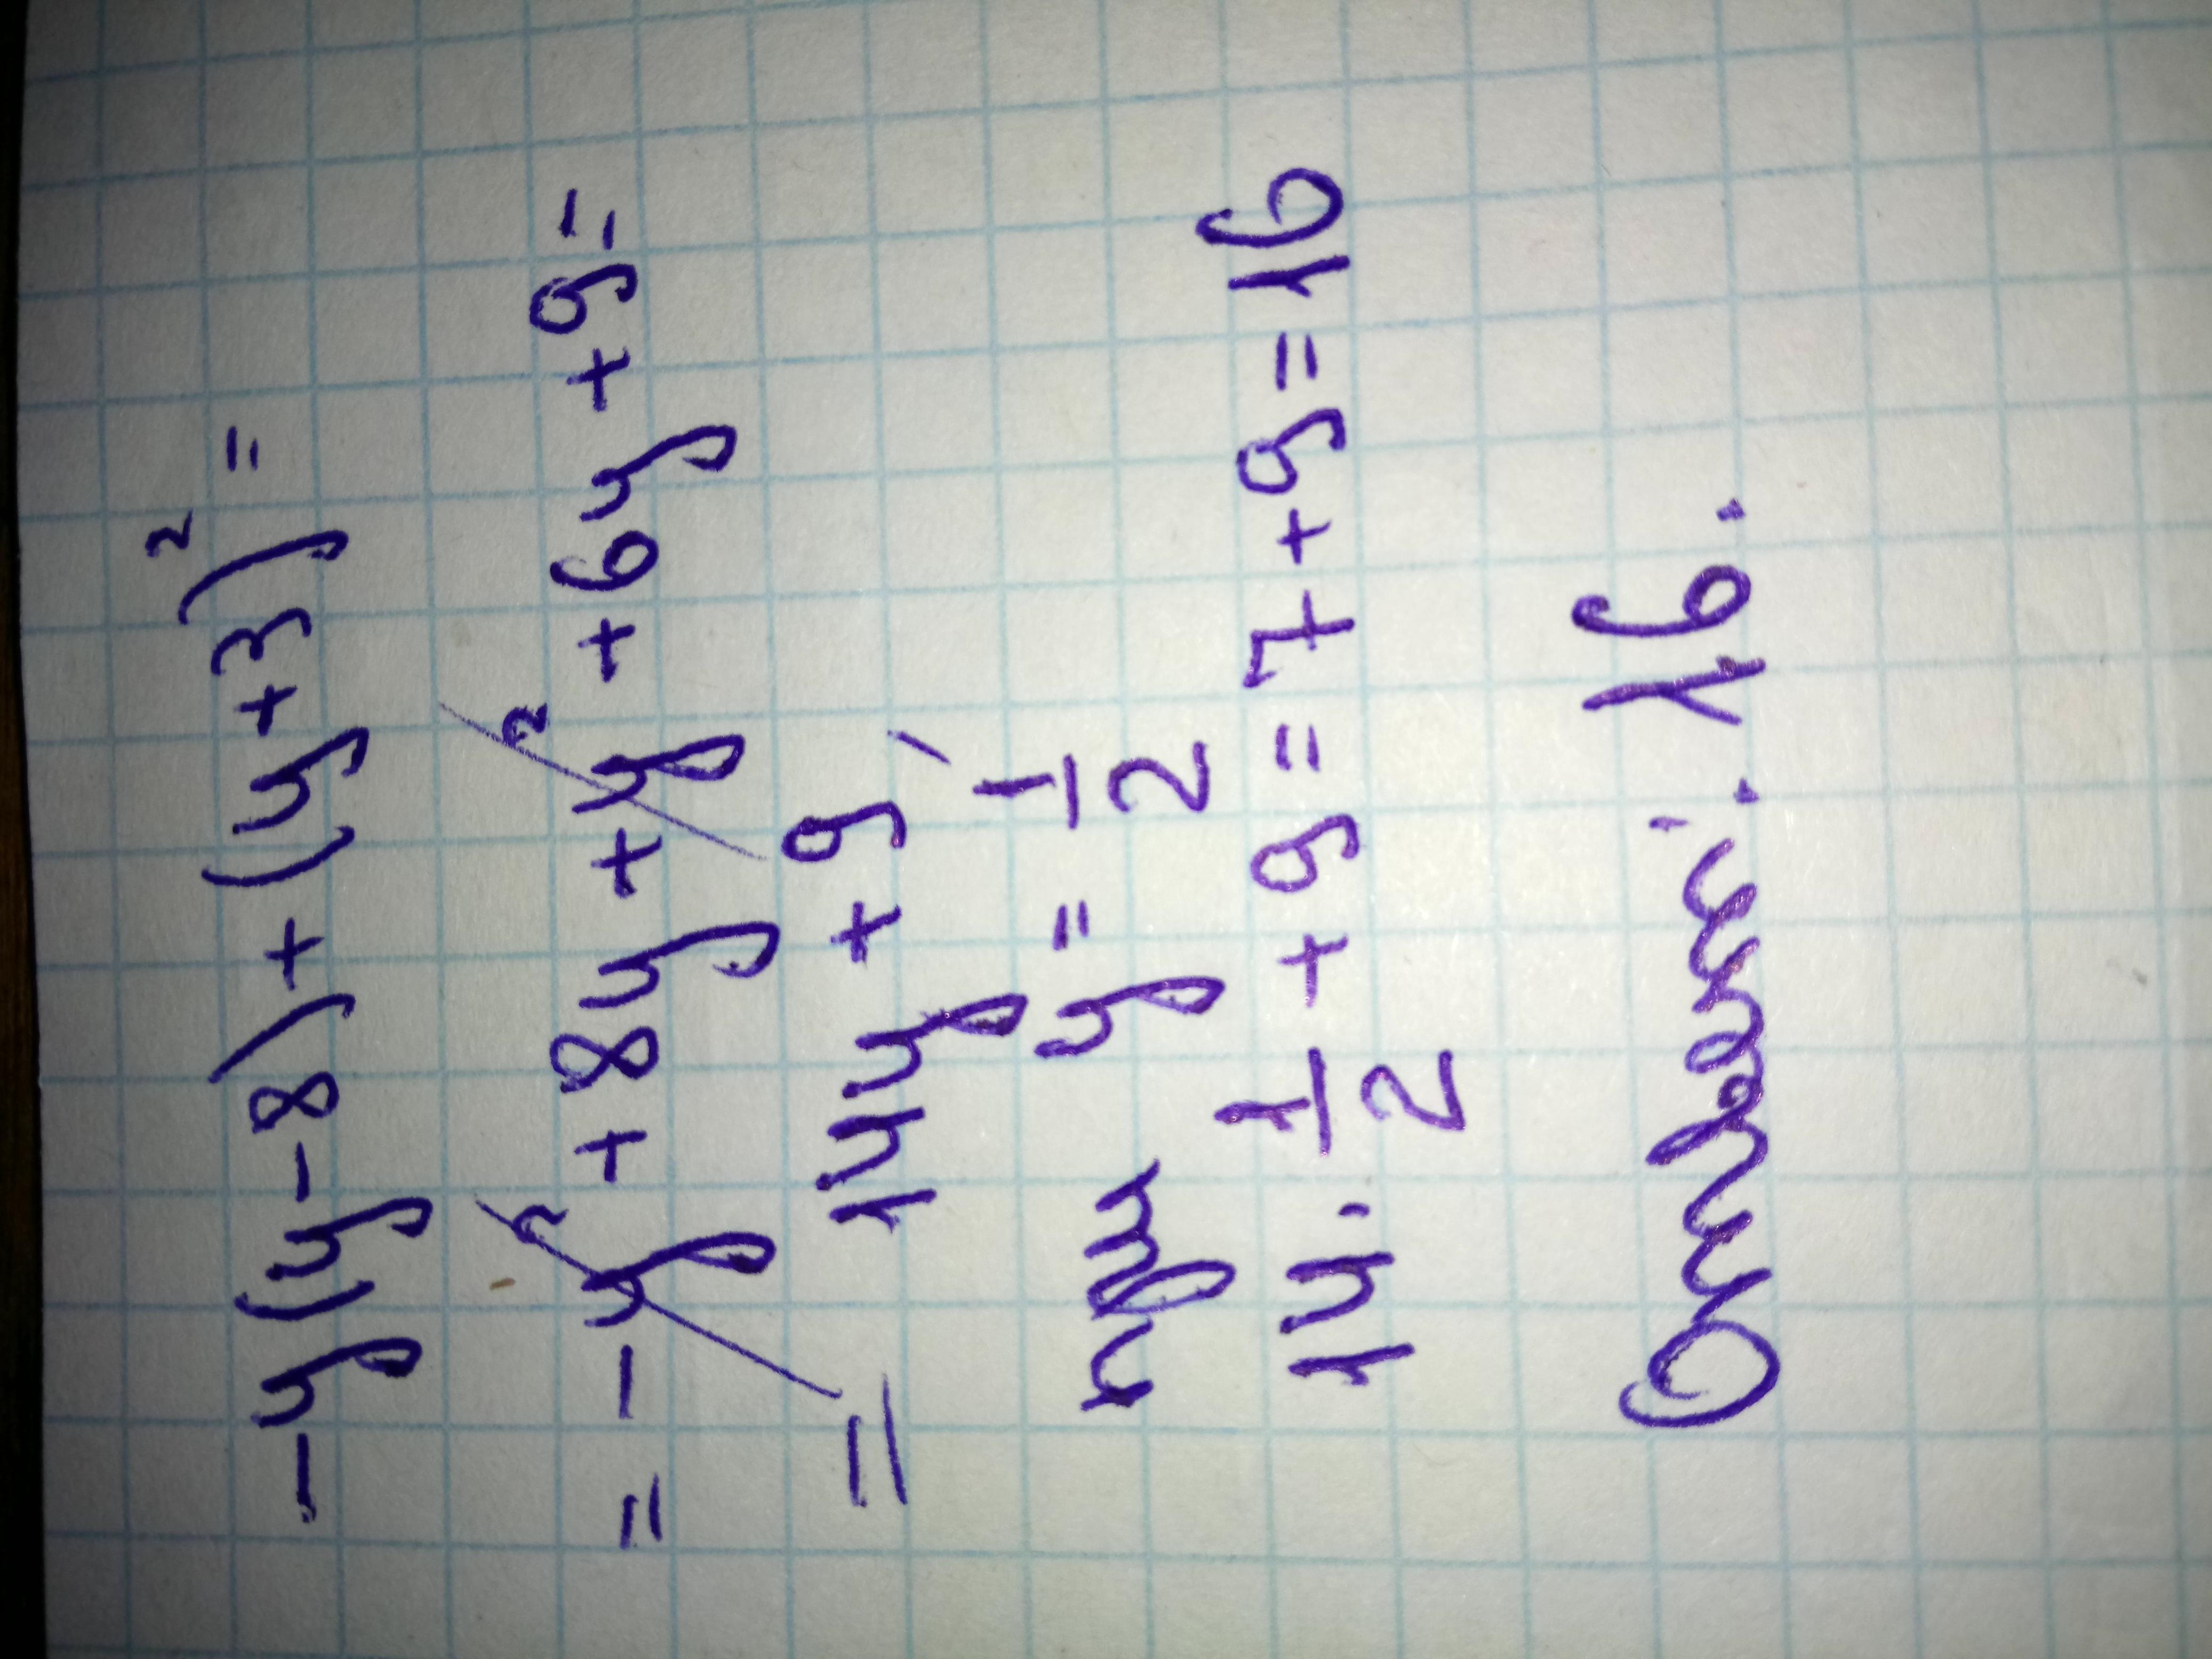 -y(y-8)+(y+3)²=
=-y²+8y+y²+6y+9=
=14y+9
при y=1/2
14·1/2+9=7+9=16
Ответ: 16.